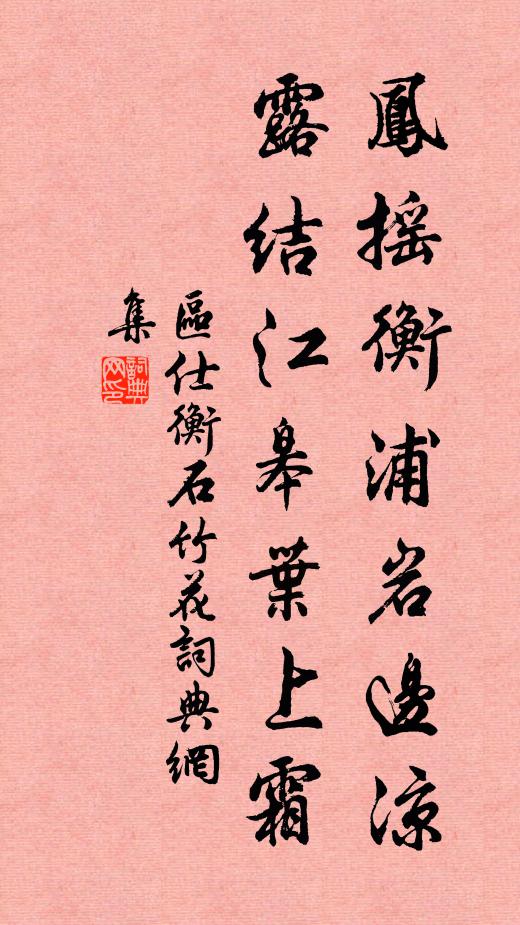 鳳摇衡浦岩邊涼
露結江皋葉上霜
區仕衡石竹花詞典網
集
詞典
网印